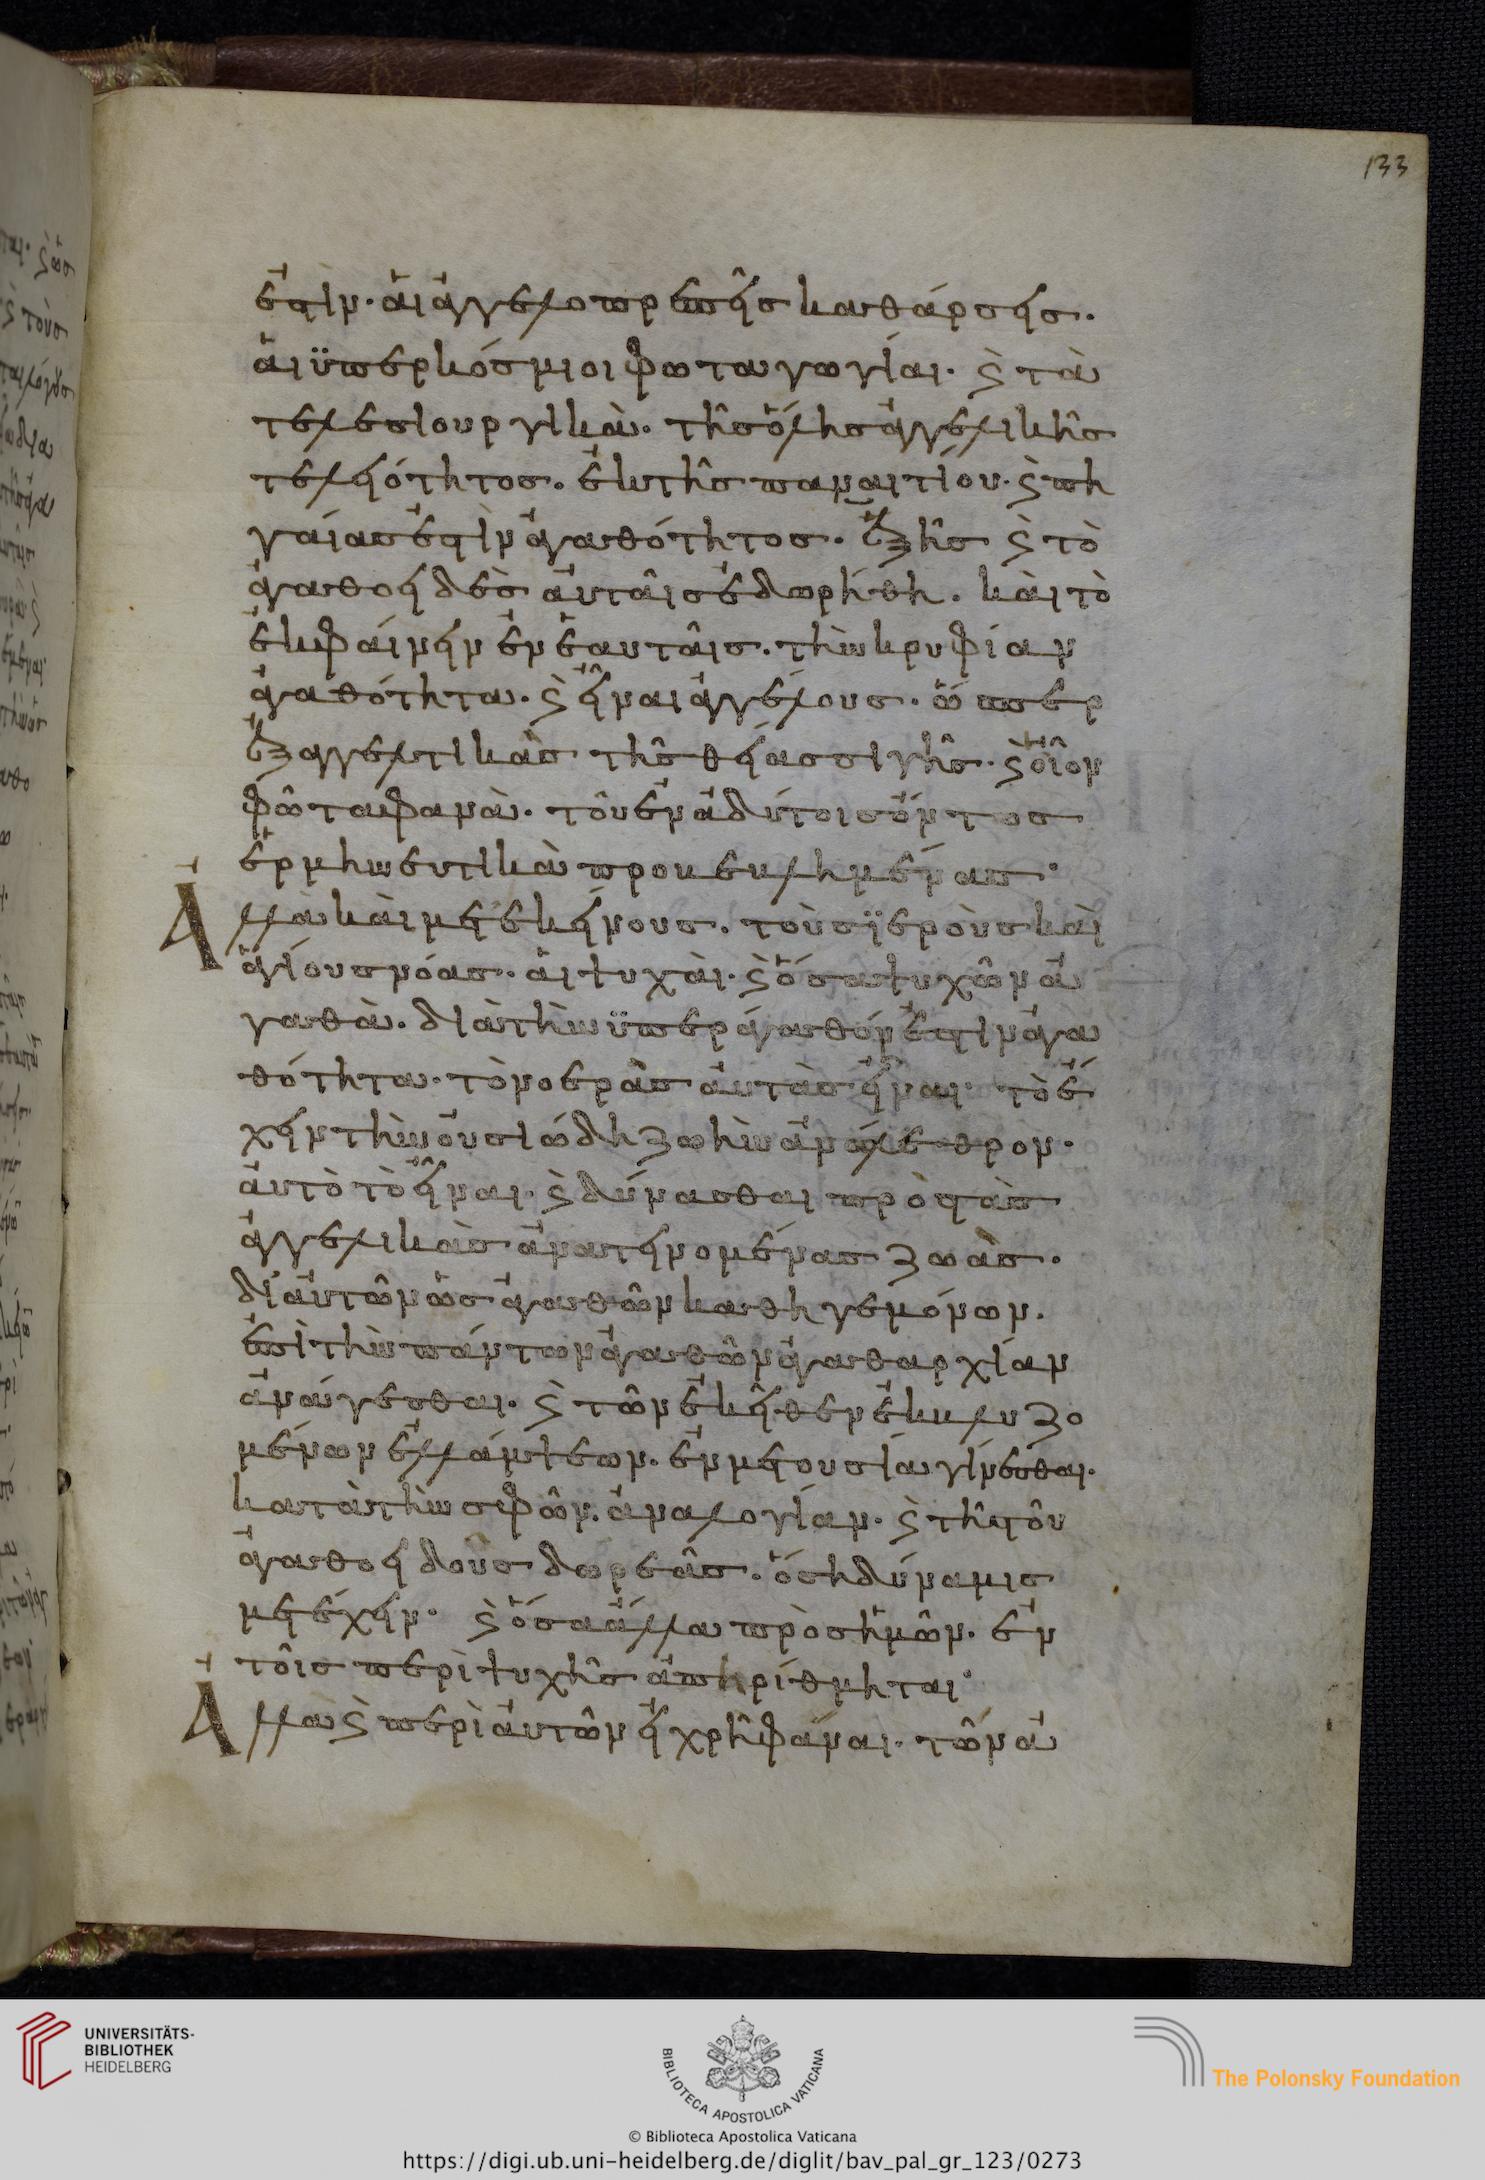 133
ἐστὶν· αἱ ἀγγελοπρεπεῖς καθάρσεις·
αἱ ὑπερκόσμιοι φωταγωγίαι· ϛ τὰ
τελεσιουργικὰ· τῆς ὅλης ἀγγελικῆς
τελειότητος· ἐκ τῆς παναιτίου· ϛ πη
γαίας ἐστὶν ἀγαθότητος· ἐξ ῆς ϛ τὸ
ἀγαθοειδὲς αὐταῖς ἐδωρήθη· καὶ τὸ
ἐκφαίνειν ἐν ἑαυταῖς· τὴν κρυφίαν
ἀγαθότητα· ϛ εἶναι ἀγγέλους· ὥσπερ
ἐξαγγελτικὰς τῆς θείας σιγῆς· ϛ οἷον
φῶτα φανὰ· τοῦ ἐν ἀδύτοις ὄντος
ἑρμηνευτικὰ προβεβλημένας·
Ἀλλὰ καὶ μετ ἐκείνους· τοὺς ϊεροὺς καὶ
ἁγίους νόας· αἱ ψυχαὶ· ϛ ὅσα ψυχῶν ἀ
γαθὰ· διὰ τὴν ϋπεράγαθόν ἐστιν ἀγα
θότητα· τὸ νοερὰς αὐτὰς εἶναι· τὸ ἔ
χειν τὴν οὐσιώδη ζωὴν ἀνώλεθρον·
αὐτὸ τὸ εἶναι· ϛ δύνασθαι πρὸς τὰς
ἀγγελικὰς ἀνατεινομένας ζωὰς·
δι’ αὐτῶν ὡς ἀγαθῶν καθηγεμόνων·
ἐπὶ τὴν πάντων ἀγαθῶν ἀγαθαρχίαν
ἀνάγεσθαι· ϛ τῶν ἐκεῖθεν ἐκβλυζο
μένων ἐλλάμψεων· ἐν μετουσία γίνεσθαι·
κατὰ τὴν σφῶν· ἀναλογίαν· ϛ τῆς τοῦ
ἀγαθοειδοῦς δωρεᾶς· ὅση δύναμις
μετέχειν· ϛ ὅσα ἄλλα πρὸς ἡμῶν· ἐν
τοῖς περὶ ψυχῆς ἀπηρίθμηται·
Ἀλλὰ ϛ περὶ αὐτῶν εἰ χρὴ φάναι· τῶν ἀ
UNIVERSITÄTS-
BIBLIOTHEK
HEIDELBERG
BIBLIOTECA APOSTOLICA VATICANA
The Polonsky Foundation
© Biblioteca Apostolica Vaticana
https://digi.ub.uni-heidelberg.de/diglit/bav_pal_gr_123/0273